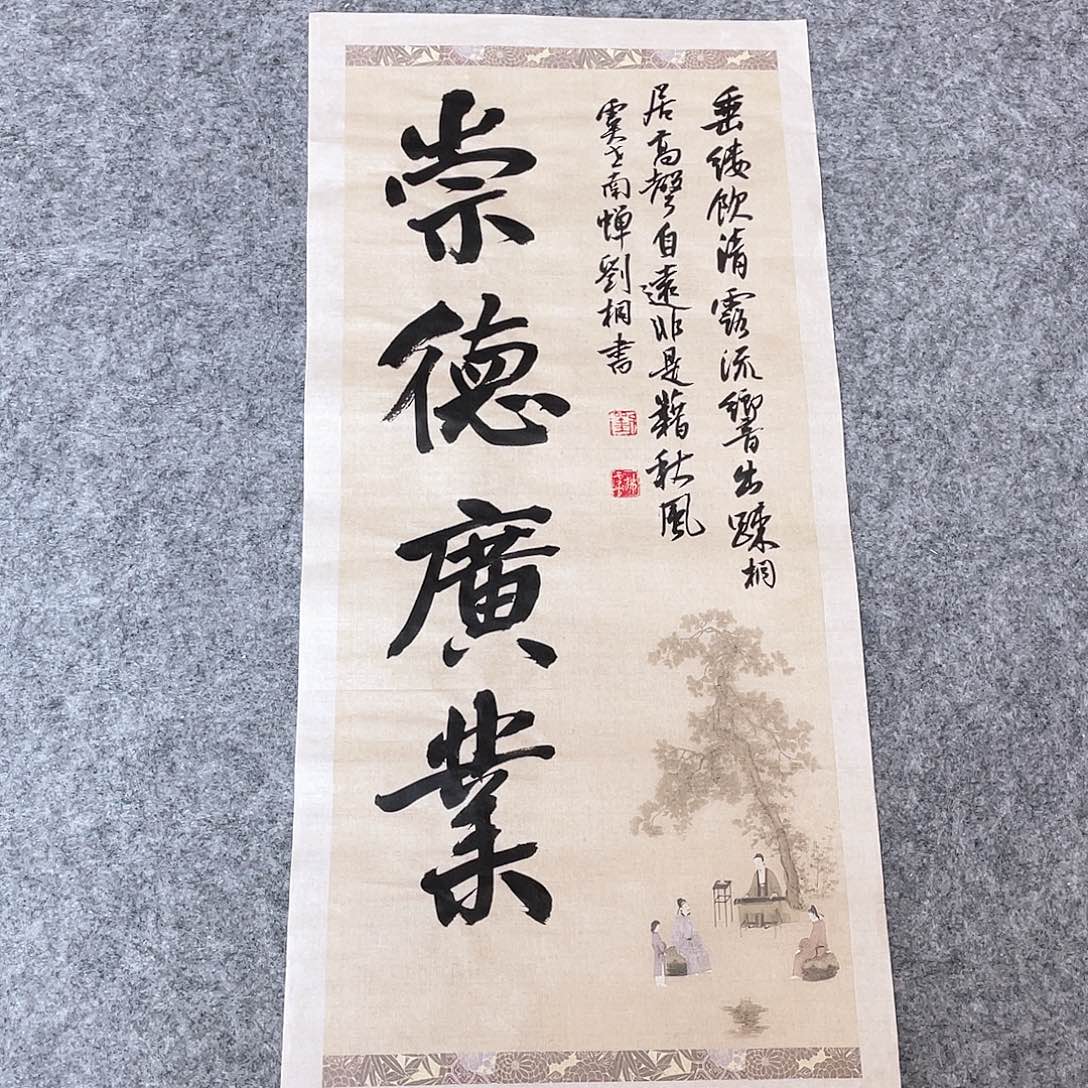 垂緌飲清露流響出踈桐
居高聲自遠非是藉秋風
虞世南蝉劉桐書
崇德廣業